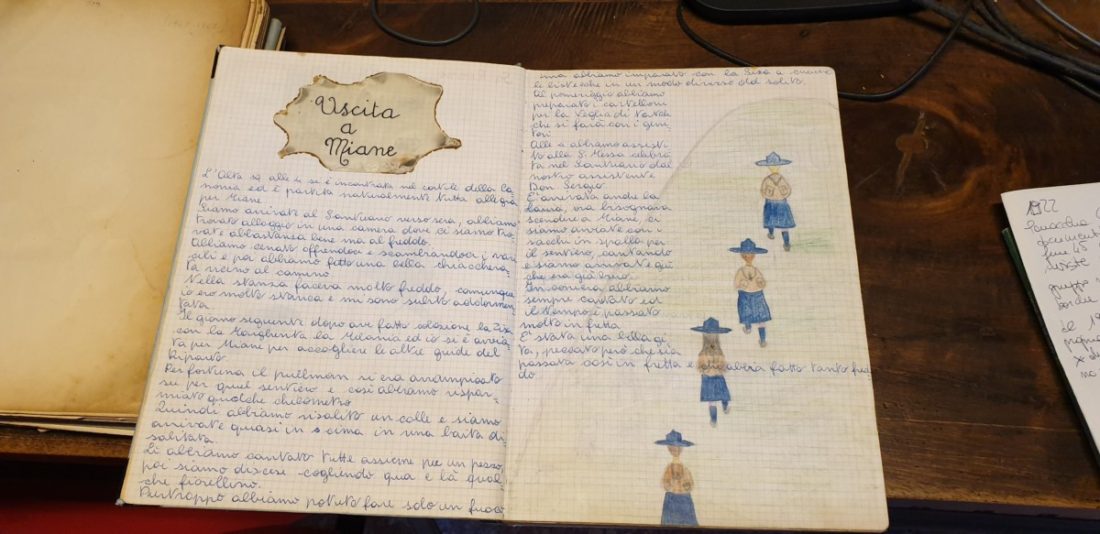 Uscita
a
Miane
L'Alta sq alle 4 si è incontrata nel cortile della
nonia ed è partita naturalmente tutta allegra
per Miane.
Siamo arrivate al Santuario verso sera, abbiamo
trovato alloggio in una camera dove ci siamo tro
vate abbastanza bene ma al freddo.
Abbiamo cenato offrendoci e scambiandoci i
cibi e poi abbiamo fatto una bella chiacchera
ta vicino al camino.
Nella stanza faceva molto freddo, comunque
io ero molto stanca e mi sono subito addormen
tata.
Il giorno seguente dopo aver fatto colazione la
con la Margherita la Melania ed io si è avvia
ta per Miane per accogliere le altre guide del
Riparto.
Per fortuna il pullman si era arrampicato
su per quel sentiero e così abbiamo rispar=
miato qualche chilometro.
Quindi abbiamo risalito un colle e siamo
arrivate quasi in cima in una baita di
sabitata.
Lì abbiamo cantato tutte assieme per un pezzo,
poi siamo discese cogliendo qua e là qual
che fiorellino.
Purtroppo abbiamo potuto fare solo un fuoco
ma abbiamo imparato con la a cuocere
le bistecche in un modo diverso dal solito.
Il pomeriggio abbiamo
preparato i cartelloni
per la Veglia di Natale
che si farà con i geni
tori
Alle 4 abbiamo assisti
to alla S. Messa celebra
ta nel Santuario dal
nostro assistente
Don Sergio.
È arrivata anche la
ora bisognava
scendere a Miane, ci
siamo avviate con i
sacchi in spalla per
il sentiero, cantando
e siamo arrivate giù
che era già buio.
In corriera abbiamo
sempre cantato ed
il tempo è passato
molto in fretta
E' stata una bella gi
ta, peccato però che sia
passata così in fretta e che abbia fatto tanto fred
do
1922